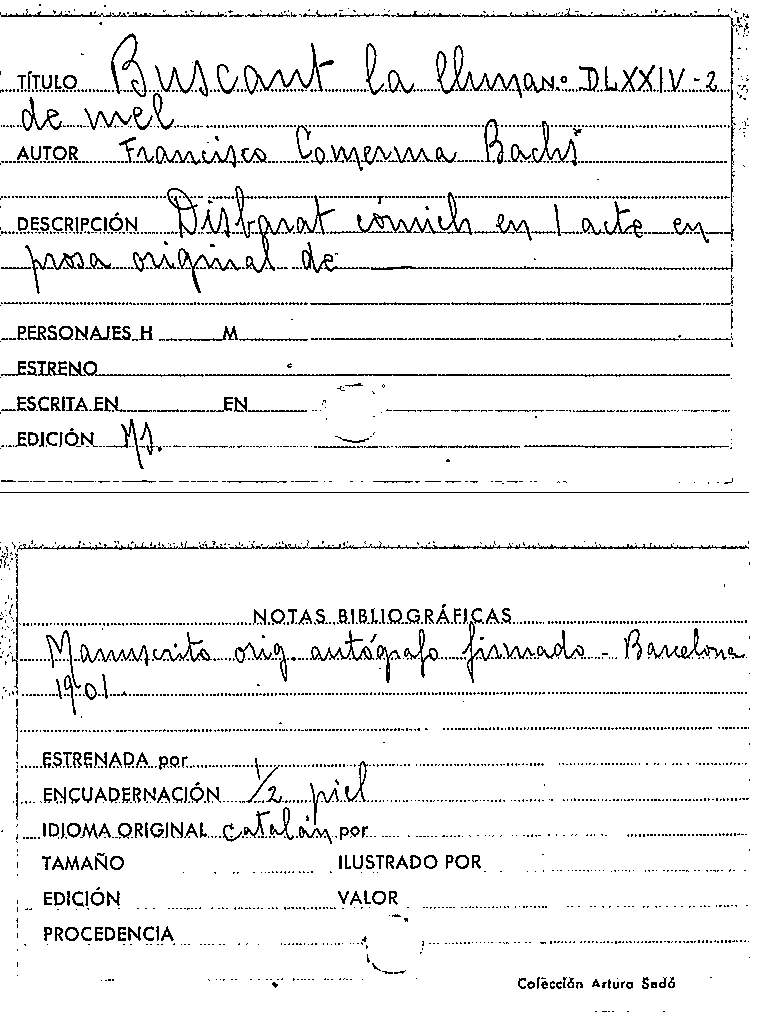 TÍTULO Buscant la lluna N.º DLXXIV-2
de mel
AUTOR Francisco Comerma Bachs
DESCRIPCIÓN Disbarat cómich en 1 acte en
prosa original de —
PERSONAJES H M
ESTRENO
ESCRITA EN EN
EDICIÓN Ms.
NOTAS BIBLIOGRÁFICAS
Manuscrito orig. autógrafo firmado - Barcelona
1901.
ESTRENADA por
ENCUADERNACIÓN 1/2 piel
IDIOMA ORIGINAL catalán por
TAMAÑO ILUSTRADO POR
EDICIÓN VALOR
PROCEDENCIA
Colección Arturo Sedó